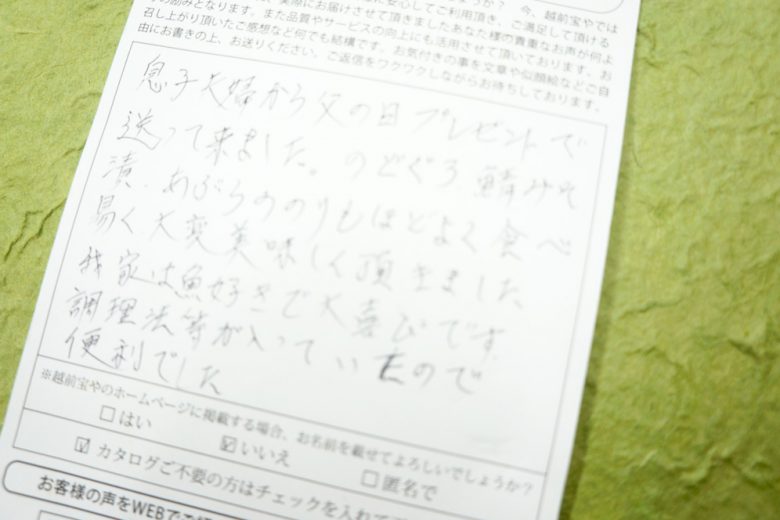 安心してご利用頂き、ご満足して頂ける
励みとなります。実際にお届けさせて頂きましたあなた様の貴重なお声が何よ
また品質やサービスの向上にも活用させて頂いております。お
召し上がり頂いたご感想など何でも結構です。お気付きの事を文章や似顔絵などご自
由にお書きの上、お送りください。ご返信をワクワクしながらお待ちしております。
息子夫婦から父の日プレゼントで
送って来ました。のどぐろ、鯖みそ
漬、あぶらののりもほどよく食べ
易く、大変美味しく頂きました
我家は魚好きで大喜びです。
調理法等が入っていたので
便利でした
※越前宝やのホームページに掲載する場合、お名前を載せてよろしいでしょうか？
□はい ☑いいえ □匿名で
☑ カタログご不要の方はチェックを入れて
お客様の声をWEBでご